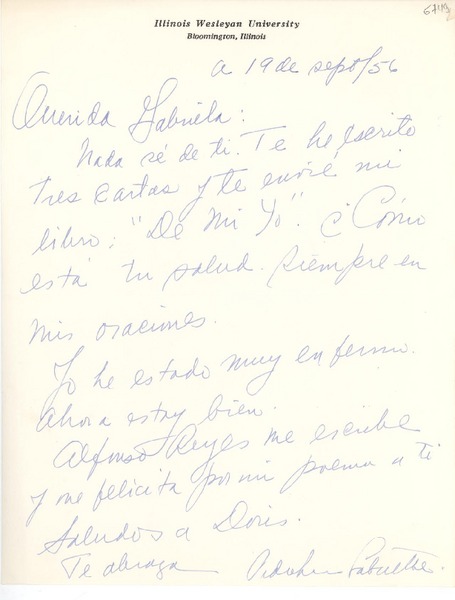 6749
Illinois Wesleyan University
Bloomington, Illinois
a 19 de sept/56
Querida Gabriela:
Nada sé de ti. Te he escrito
tres cartas y te envié mi
libro: "De Mi Yo". ¿Cómo
está tu salud. Siempre en
mis oraciones.
Yo he estado muy enfermo.
Ahora estoy bien.
Alfonso Reyes me escribe
y me felicita por mi poema a ti
Saludos a Doris.
Te abraza